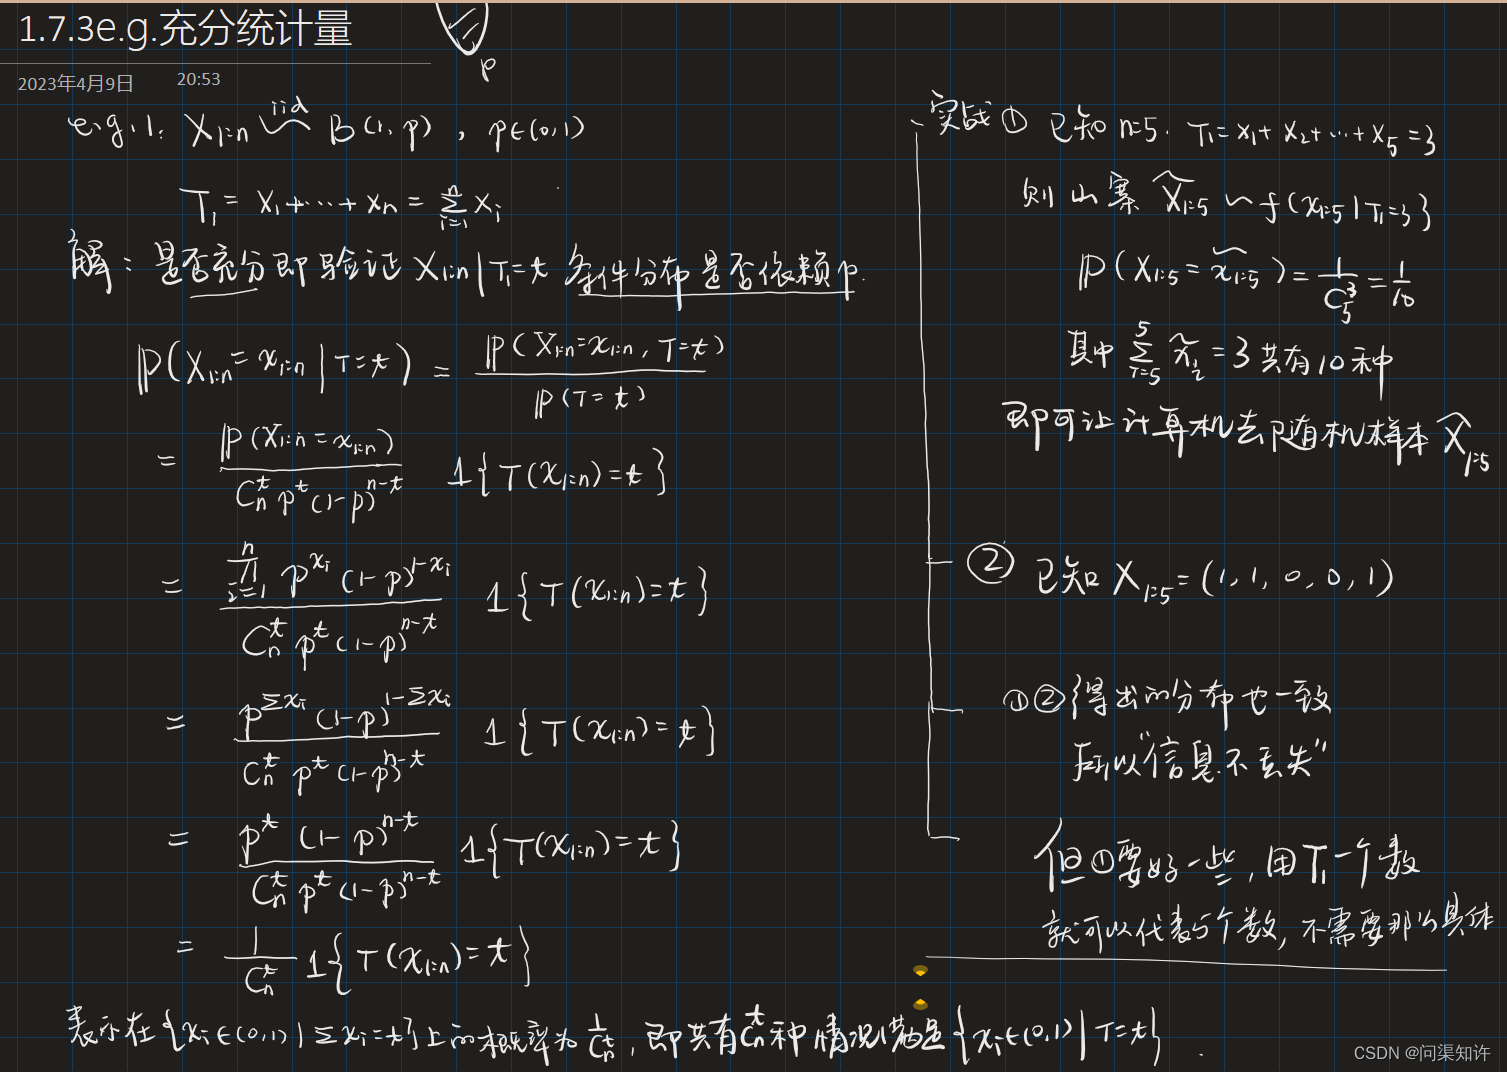 1.7.3e.g.充分统计量
2023年4月9日 20:53
p
e.g.1: X₁:ₙ iid~ B(1,p), p∈(0,1)
T₁ = X₁+⋯+Xₙ = Σᵢ₌₁ⁿ Xᵢ
解：是否充分即验证 X₁:ₙ|T₁=t 条件分布是否依赖p.
ℙ(X₁:ₙ=x₁:ₙ | T=t) = ℙ(X₁:ₙ=x₁:ₙ, T=t) / ℙ(T=t)
= ℙ(X₁:ₙ=x₁:ₙ) / Cₙᵗ pᵗ(1-p)ⁿ⁻ᵗ 1{T(x₁:ₙ)=t}
= ∏ᵢ₌₁ⁿ p^xᵢ (1-p)^(1-xᵢ) / Cₙᵗ pᵗ(1-p)ⁿ⁻ᵗ 1{T(x₁:ₙ)=t}
= p^Σxᵢ (1-p)^(1-Σxᵢ) / Cₙᵗ pᵗ(1-p)ⁿ⁻ᵗ 1{T(x₁:ₙ)=t}
= pᵗ (1-p)ⁿ⁻ᵗ / Cₙᵗ pᵗ(1-p)ⁿ⁻ᵗ 1{T(x₁:ₙ)=t}
= 1/Cₙᵗ 1{T(x₁:ₙ)=t}
表示在{xᵢ∈(0,1)|Σxᵢ=t}上的概率为 1/Cₙᵗ, 即共有Cₙᵗ种情况满足{xᵢ∈(0,1)|T=t}.
实战① 已知 n=5. T₁=x₁+x₂+⋯+x₅=3
则山寨 X̃₁:₅ ~ f(x₁:₅|T₁=3)
ℙ(X₁:₅=x̃₁:₅) = 1/C₅³ = 1/10
其中 Σ x̃ᵢ = 3 共有10种
即可让计算机去随机样本 X̃₁:₅
② 已知 X₁:₅=(1,1,0,0,1)
①②得出的分布也一致
所以“信息不丢失”
但①要好一些, 用T₁一个数
就可以代表5个数, 不需要那么具体
CSDN @问渠知许